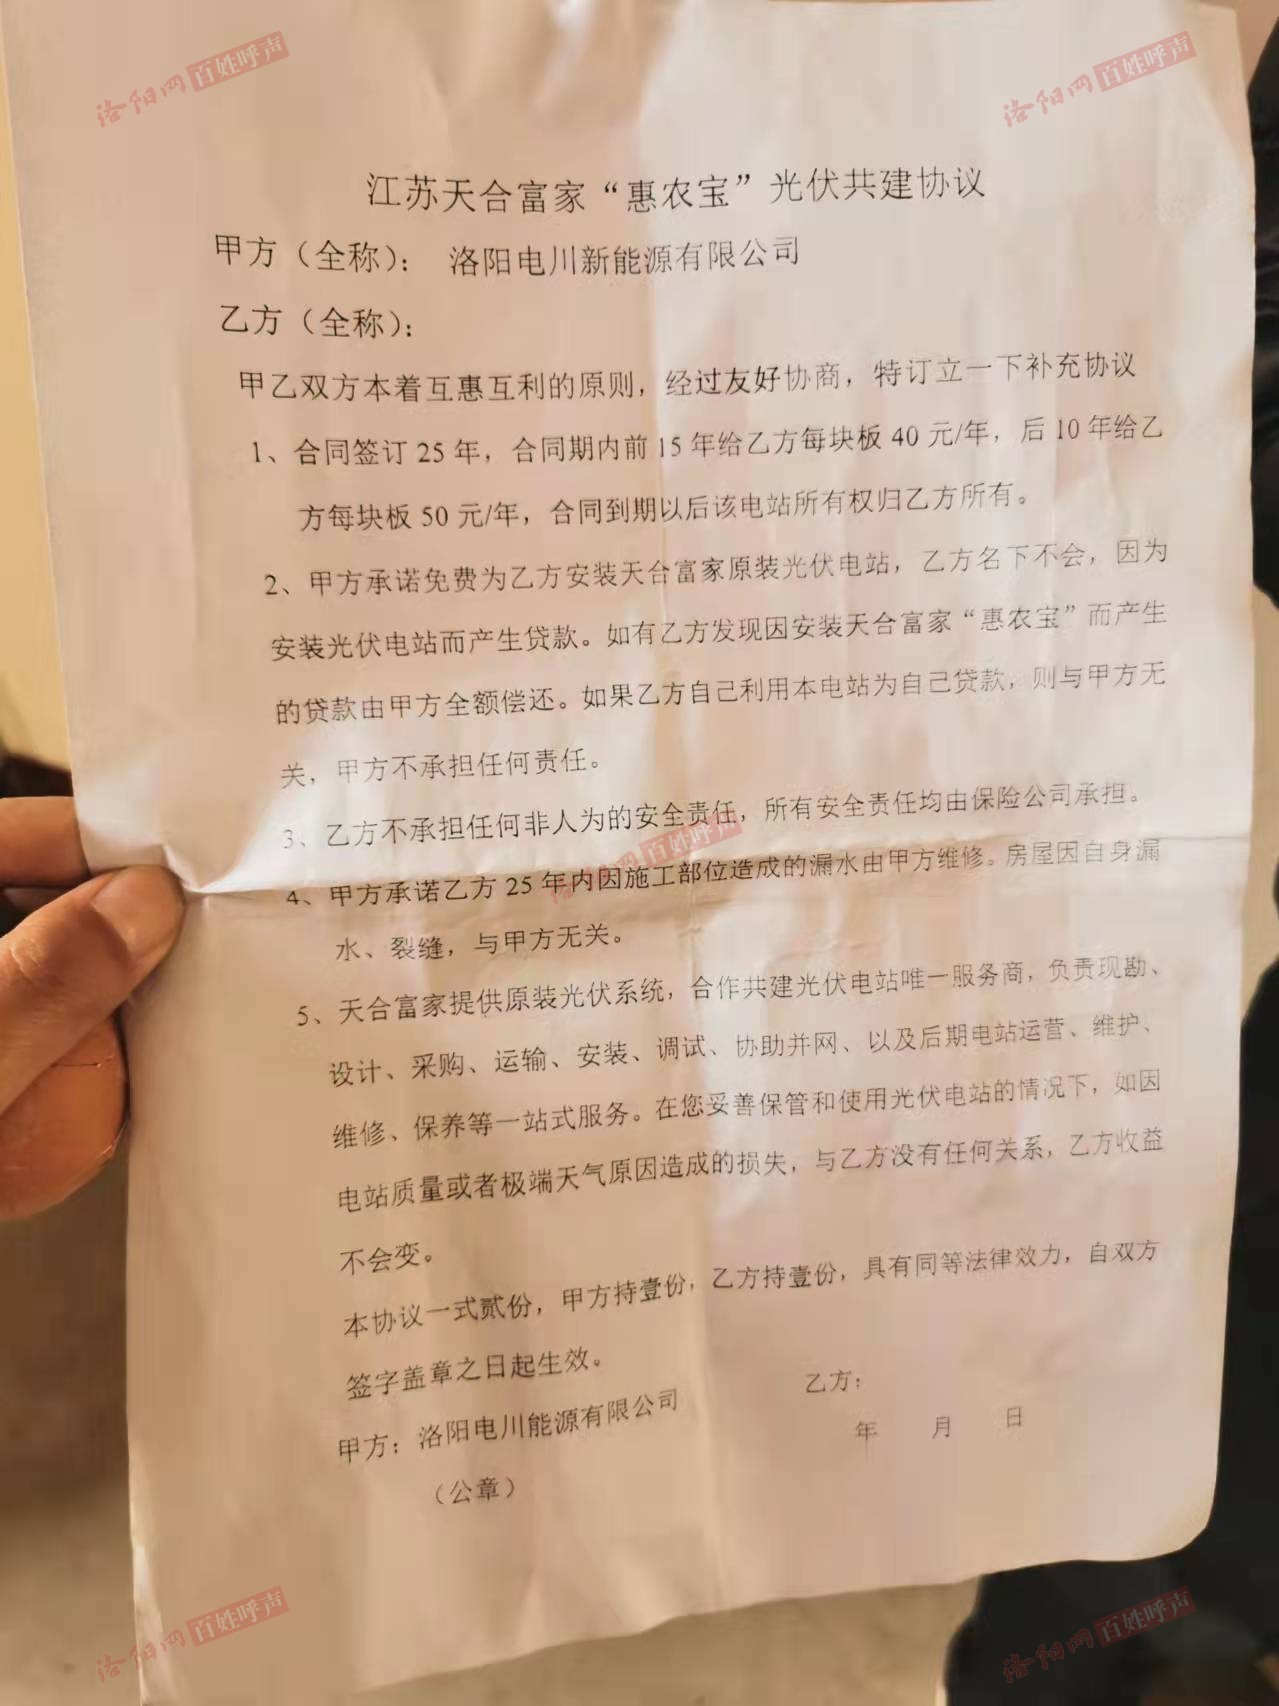 洛阳网 百姓呼声
洛阳网 百姓呼声
江苏天合富家“惠农宝”光伏共建协议
甲方（全称）： 洛阳电川新能源有限公司
乙方（全称）：
甲乙双方本着互惠互利的原则，经过友好协商，特订立一下补充协议
1、合同签订 25 年，合同期内前 15 年给乙方每块板 40 元/年，后 10 年给乙
方每块板 50 元/年，合同到期以后该电站所有权归乙方所有。
2、甲方承诺免费为乙方安装天合富家原装光伏电站，乙方名下不会，因为
安装光伏电站而产生贷款。如有乙方发现因安装天合富家“惠农宝”而产生
的贷款由甲方全额偿还。如果乙方自己利用本电站为自己贷款，则与甲方无
关，甲方不承担任何责任。
3、乙方不承担任何非人为的安全责任，所有安全责任均由保险公司承担。
洛阳网 百姓呼声
4、甲方承诺乙方 25 年内因施工部位造成的漏水由甲方维修。房屋因自身漏
水、裂缝，与甲方无关。
5、天合富家提供原装光伏系统，合作共建光伏电站唯一服务商，负责现勘、
设计、采购、运输、安装、调试、协助并网、以及后期电站运营、维护、
维修、保养等一站式服务。在您妥善保管和使用光伏电站的情况下，如因
电站质量或者极端天气原因造成的损失，与乙方没有任何关系，乙方收益
不会变。
本协议一式贰份，甲方持壹份，乙方持壹份，具有同等法律效力，自双方
签字盖章之日起生效。
甲方：洛阳电川能源有限公司 乙方：
年 月 日
（公章）
洛阳网 百姓呼声
洛阳网 百姓呼声